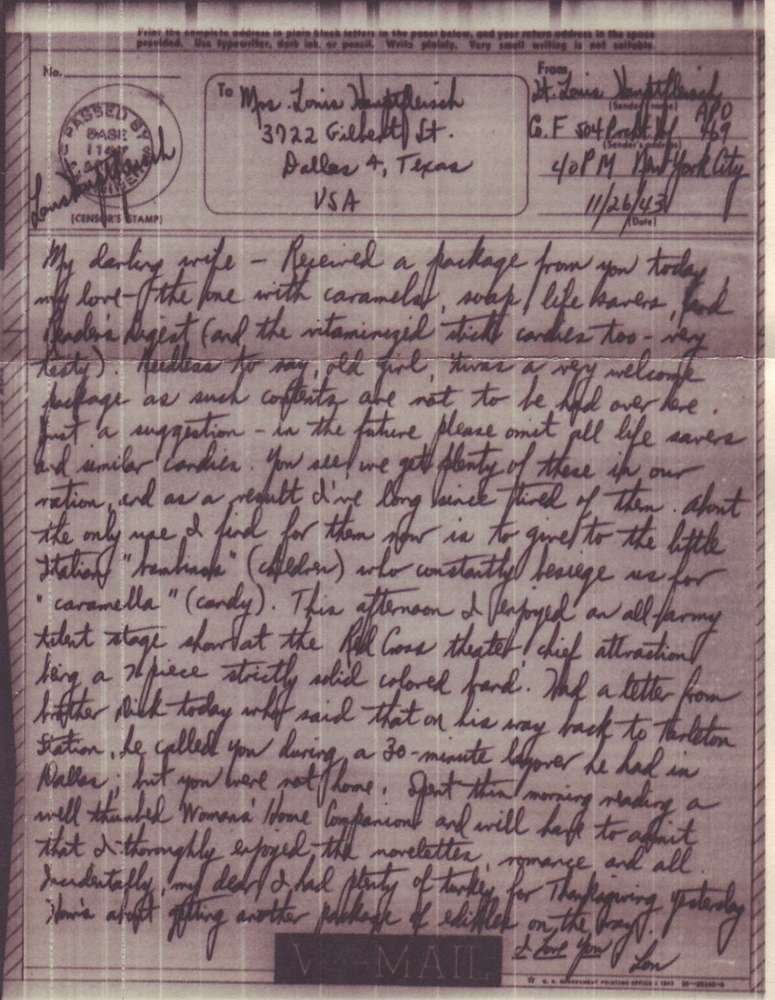 Print the complete address in plain block letters in the panel below, and your return address in the space
provided. Use typewriter, dark ink, or pencil. Write plainly. Very small writing is not suitable.
No.
To
From
Mrs. Louis Hauptfleisch
3722 Gilbert St.
Dallas 4, Texas
USA
Lt. Louis Hauptfleisch
(Sender's name)
APO
Co. F 504 Prcht. Inf 469
(Sender's address)
℅ PM New York City
11/26/43
(Date)
PASSED BY
BASE
Louis Hauptfleisch
(CENSOR'S STAMP)
My darling wife – Received a package from you today
my love – the one with caramels, soap, life savers, and
Reader's Digest (and the vitaminized stick candies too – very
tasty). Needless to say, old girl, 'twas a very welcome
package as such contents are not to be had over here.
Just a suggestion – in the future please omit all life savers
and similar candies. You see, we get plenty of these in our
ration, and as a result I've long since tired of them. About
the only use I find for them now is to give to the little
Italian "bambinos" (children) who constantly besiege us for
"caramella" (candy). This afternoon I enjoyed an all-army
talent stage show at the Red Cross theater, chief attraction
being a piece strictly solid colored band. Had a letter from
brother Dick today who said that on his way back to Tarleton
Station, he called you during a 30-minute layover he had in
Dallas; but you were not home. Spent this morning reading a
well thumbed Womans' Home Companion and will have to admit
that I thoroughly enjoyed the novelettes, romance and all.
Incidentally, my dear, I had plenty of turkey for Thanksgiving yesterday
How's about getting another package of edibles on the way.
I Love You
Lou
V-MAIL
U. S. GOVERNMENT PRINTING OFFICE : 1943